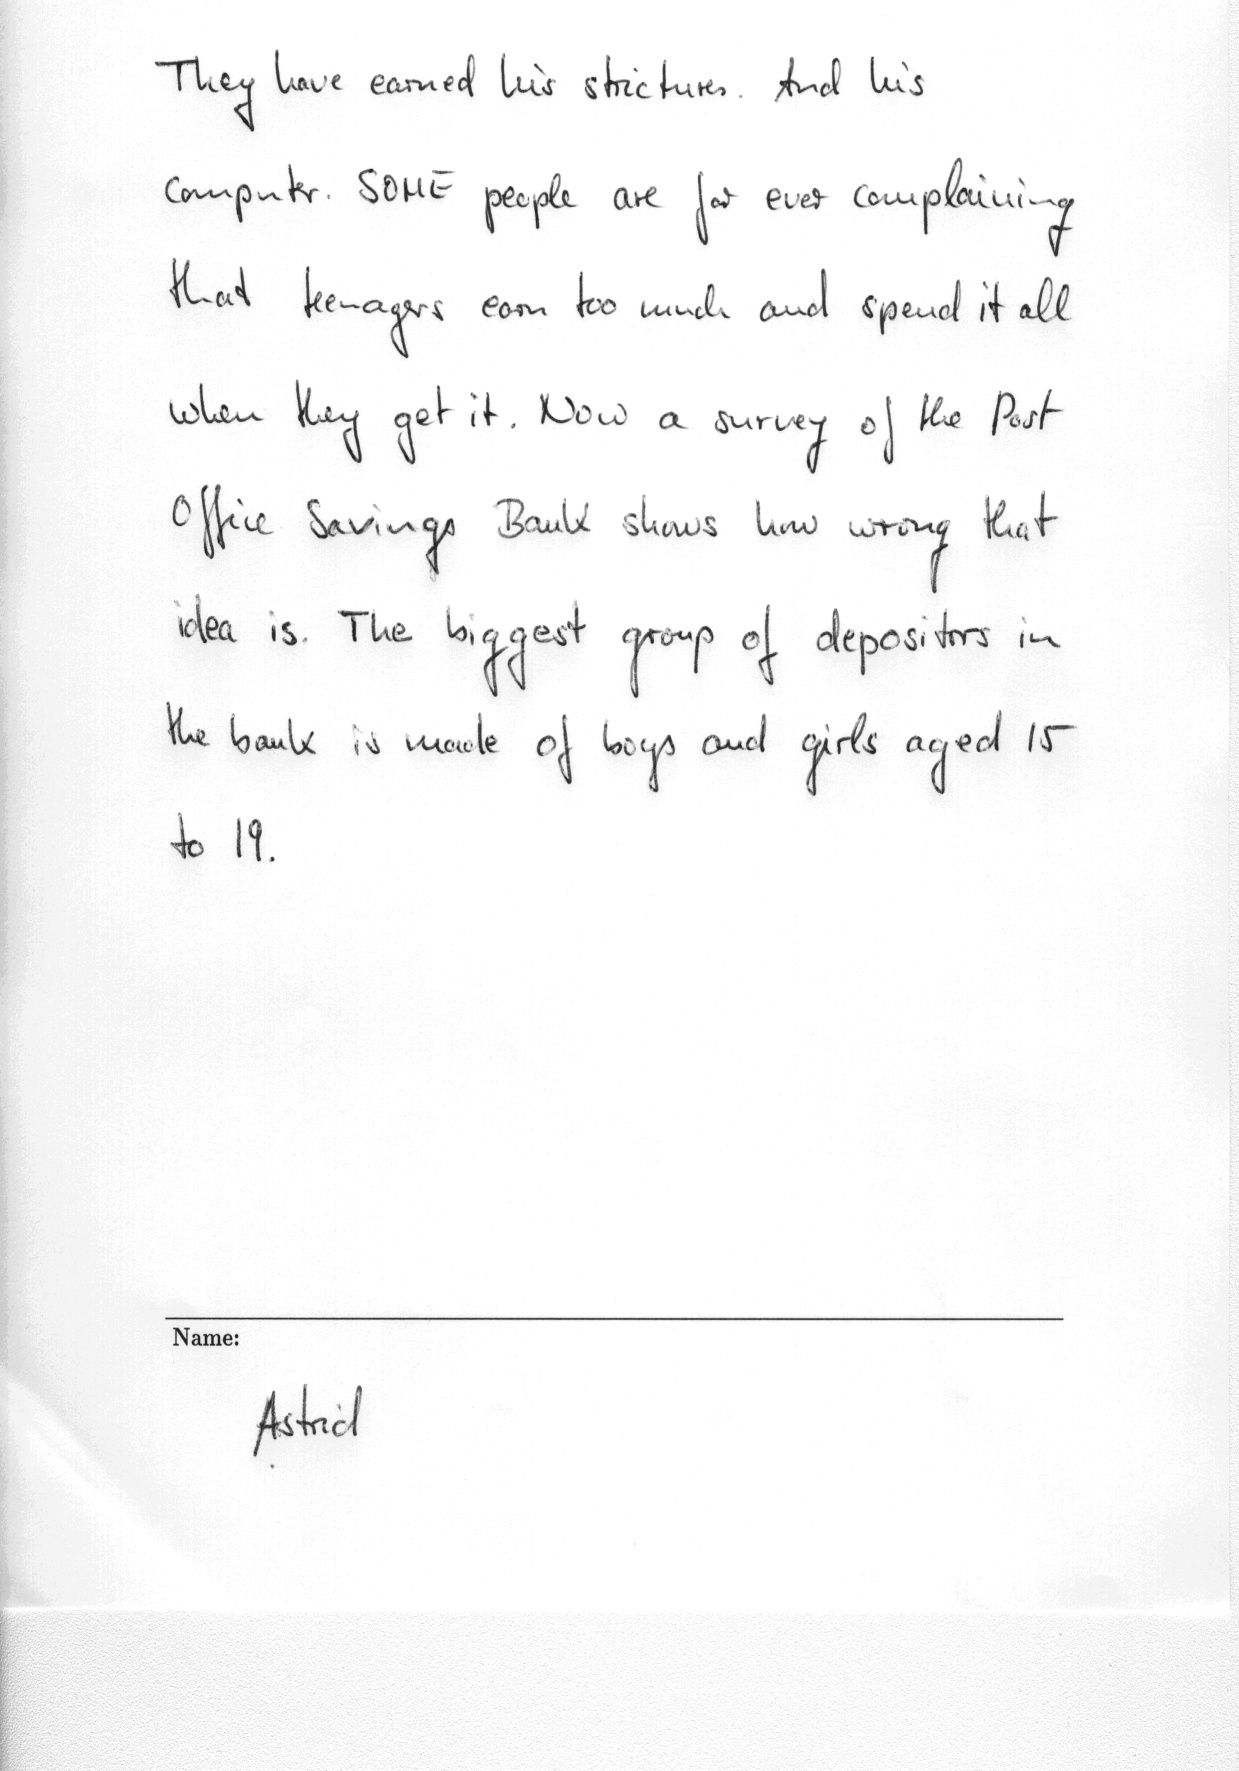 They have earned his strictures. And his
computer. SOME people are for ever complaining
that teenagers earn too much and spend it all
when they get it. Now a survey of the Post
Office Savings Bank shows how wrong that
idea is. The biggest group of depositors in
the bank is made of boys and girls aged 15
to 19.
Name:
Astrid